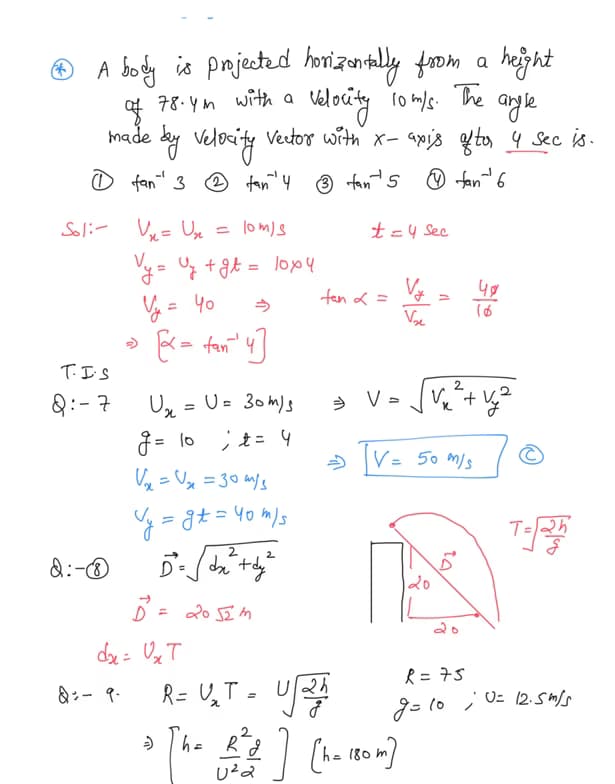 * A body is projected horizontally from a height
of 78.4m with a velocity 10 m/s. The angle
made by velocity vector with x-axis after 4 sec is.
① tan⁻¹ 3 ② tan⁻¹ 4 ③ tan⁻¹ 5 ④ tan⁻¹ 6
Sol:- Vx = Ux = 10 m/s t = 4 sec
Vy = Uy + gt = 10×4
Vy = 40 ⇒ tan α = Vy/Vx = 40/10
⇒ [α = tan⁻¹ 4]
T.I.S
Q:- 7 Ux = U = 30 m/s ⇒ V = √(Vx² + Vy²)
g = 10 ; t = 4
⇒ V = 50 m/s Ⓒ
Vx = Ux = 30 m/s
Vy = gt = 40 m/s
T = √(2h/g)
Q:- ⑧ D⃗ = √(dx² + dy²)
D⃗
20
20
D⃗ = 20√2 m
dx = Ux T
Q:- 9. R = Ux T = U√(2h/g) R = 75
g = 10 ; U = 12.5 m/s
⇒ [h = R²g/U²2] [h = 180 m]